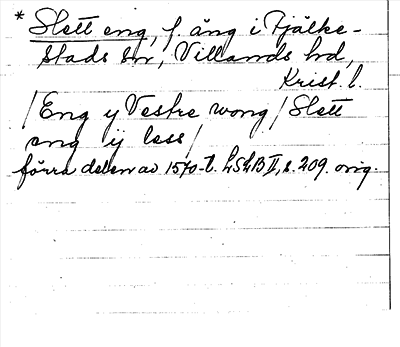 * Slett eng, f. äng i Fjälke-
stads sn, Villands hd,
Krist. l.
/Eng y Vestre wong/ Slett
eng ij less/
förra delen av 1570-t. LSLB II, s. 209. orig.